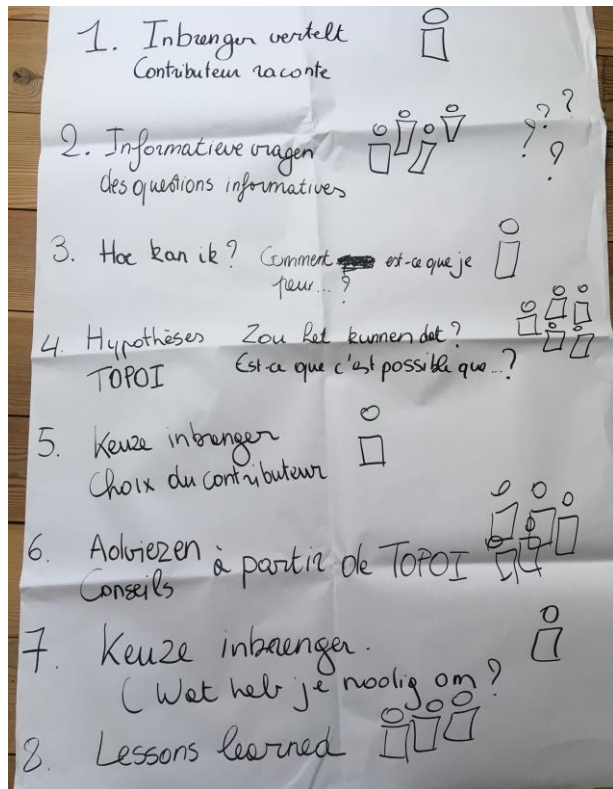 1. Inbrenger vertelt
Contributeur raconte
2. Informatieve vragen ? ? ? ?
des questions informatives
3. Hoe kan ik? Comment est-ce que je
peux...?
4. Hypothèses Zou het kunnen dat?
TOPOI Est-ce que c'est possible que...?
5. Keuze inbrenger
Choix du contributeur
6. Adviezen à partir de TOPOI
Conseils
7. Keuze inbrenger.
(Wat heb je nodig om?
8. Lessons learned